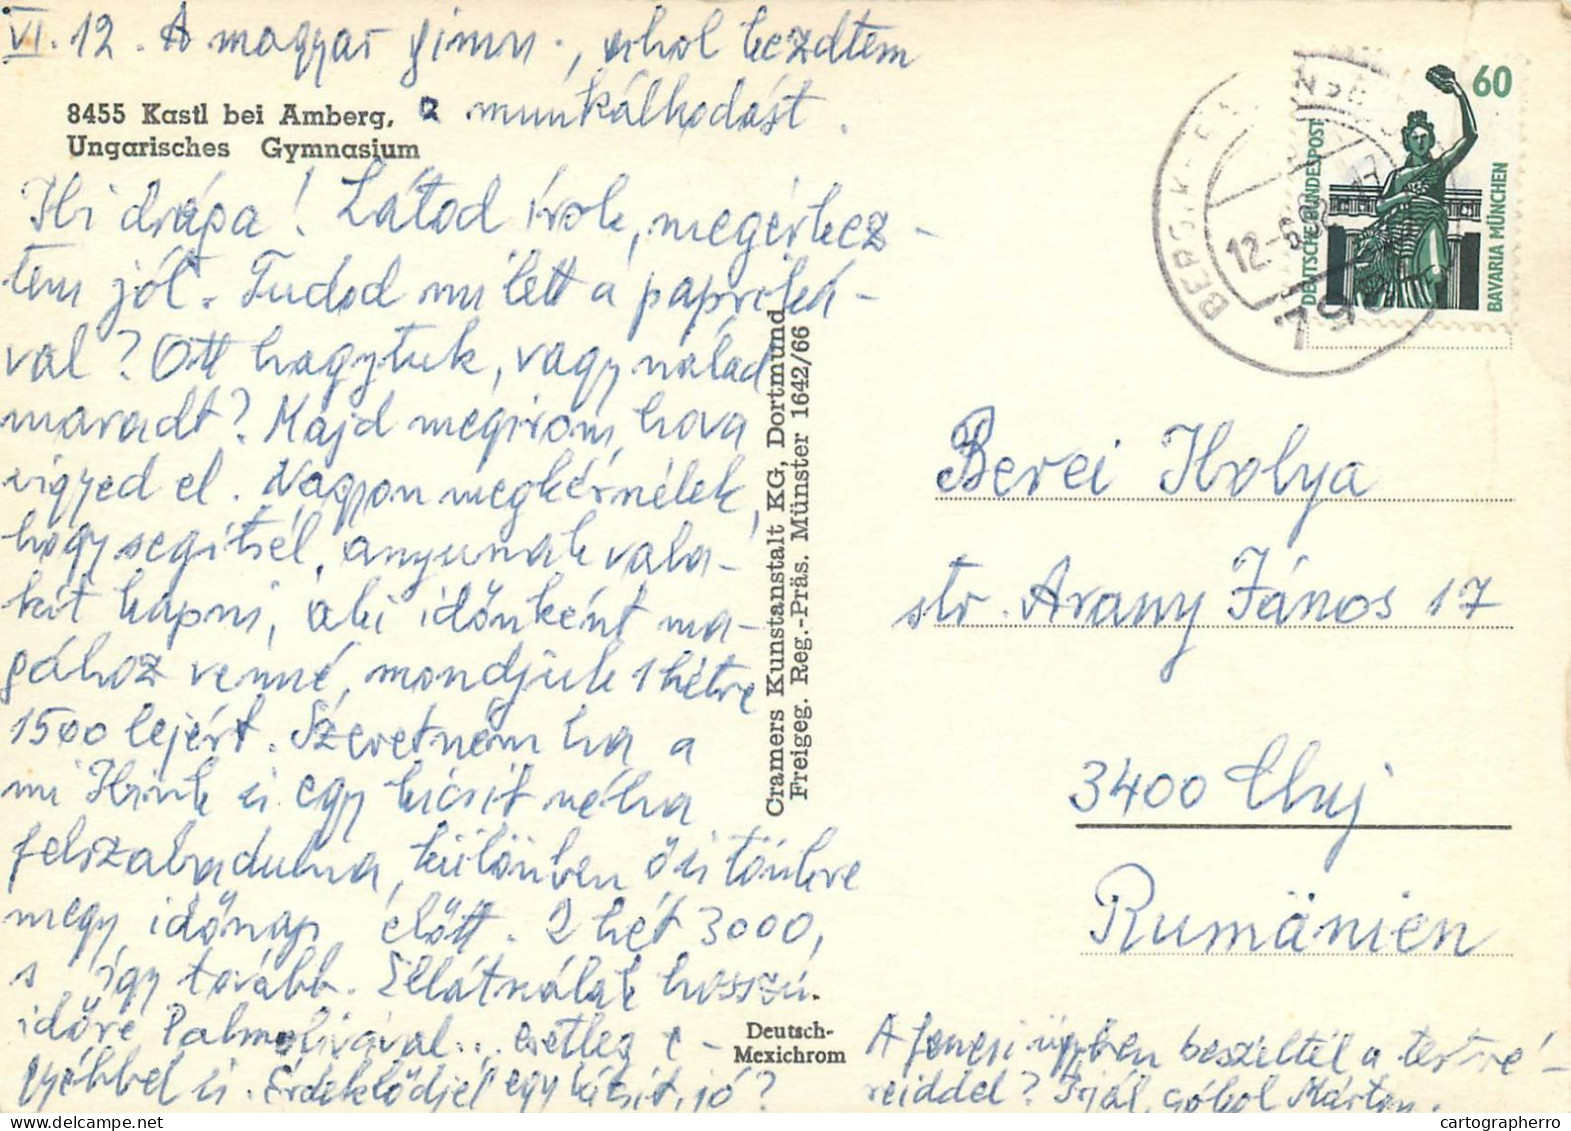 VI. 12. A magyar gimn., ahol kezdtem
a munkálkodást.
8455 Kastl bei Amberg,
Ungarisches Gymnasium
Ibi drága! Látod írok, megérkez-
tem jól. Tudod mi lett a papriká-
val? Ott hagytuk, vagy nálad
maradt? Majd megirom, hova
vigyed el. Nagyon megkérnélek,
hogy segitsél anyunak vala-
kit kapni, aki időnként ma-
gához venné, mondjuk 1 hétre
1500 lejért. Szeretném ha a
mi Ibink is egy kicsit néha
felszabadulna, különben ő is tönkre
megy időnap előtt. 2 hét 3000,
s így tovább. Ellátnálak hosszú
időre Palmolivával... esetleg e-
gyébbel is. Érdeklődjél egy kicsit, jó?
Cramers Kunstanstalt KG, Dortmund
Freigeg. Reg.-Präs. Münster 1642/66
Deutsch-
Mexichrom
60
DEUTSCHE BUNDESPOST
BAVARIA MÜNCHEN
BERG.K
12.-6.
17
Berei Ibolya
str. Arany János 17
3400 Cluj
Rumänien
A ügyben beszéltél a testvé-
reiddel? Írjál, Márton.
cartographerro